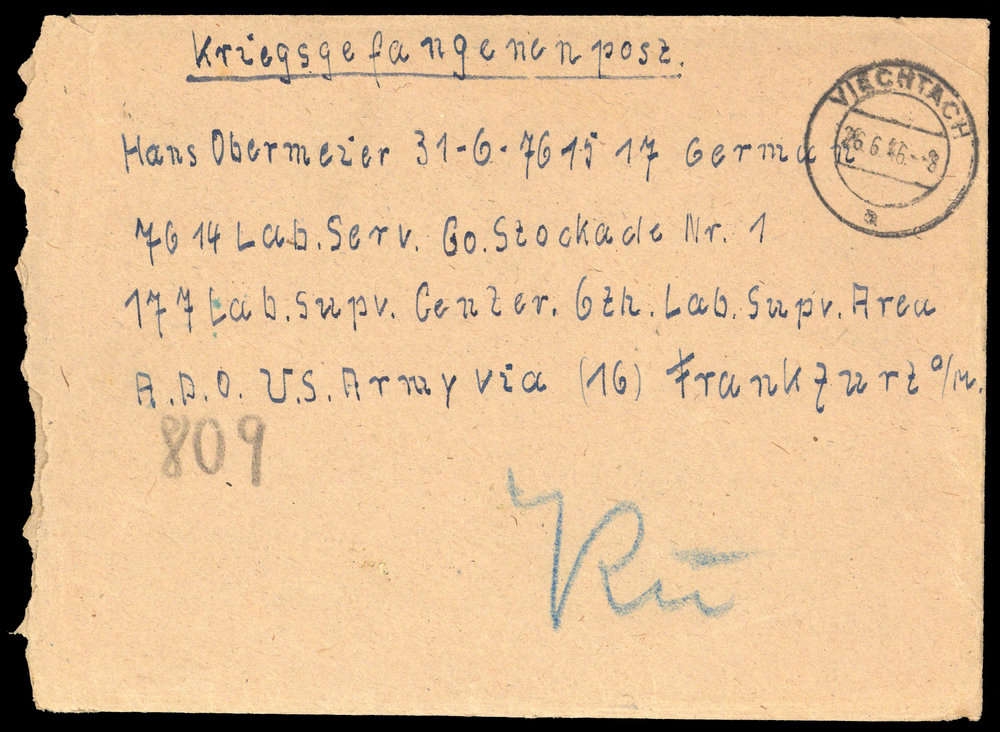 Kriegsgefangenenpost.
VIECHTACH
26.6.46.--8
a
Hans Obermeier 31-G-7615 17 German
7614 Lab. Serv. Co. Stockade Nr. 1
177 Lab. Supv. Center. 6th. Lab. Supv. Area
A.P.O. U.S. Army via (16) Frankfurt a/M.
809